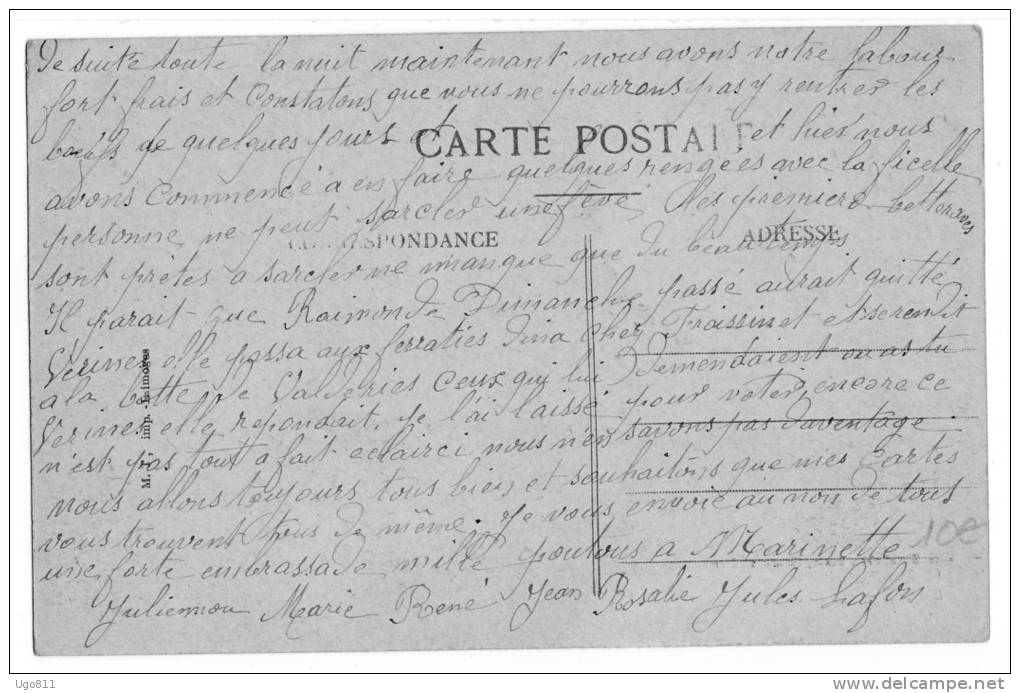 De suite toute la nuit maintenant nous avons notre labour
fort frais et Constatons que vous ne pourrons pas y rentrer les
bœufs de quelques jours et et hier nous
CARTE POSTALE
avons Commencé a en faire quelques rengées avec la ficelle
personne ne peut sarcler une fève, les premiere betteraves
CORRESPONDANCE
ADRESSE
sont prètes a sarcler ne manque que du beau temps
Il parait que Raimonde Dimanche passé aurait quitté
Vérines elle passa aux ferraties dina chez Fraissinet et se rendit
a la botte de Valderies Ceux qui lui Demendaient ou as tu
Vérines elle repondait je l'ai laissé pour voter, encore ce
n'est pas tout a fait eclairci nous n'en savons pas daventage
nous allons toujours tous bien et souhaitons que mes Cartes
vous trouvent tous de même. Je vous envoie au nom de tous
une forte embrassade mille poutous a Marinette
10€
Juliennou Marie René Jean Rosalie Jules Lafon
M. imp. Limoges
Ugo811
delcampe.net